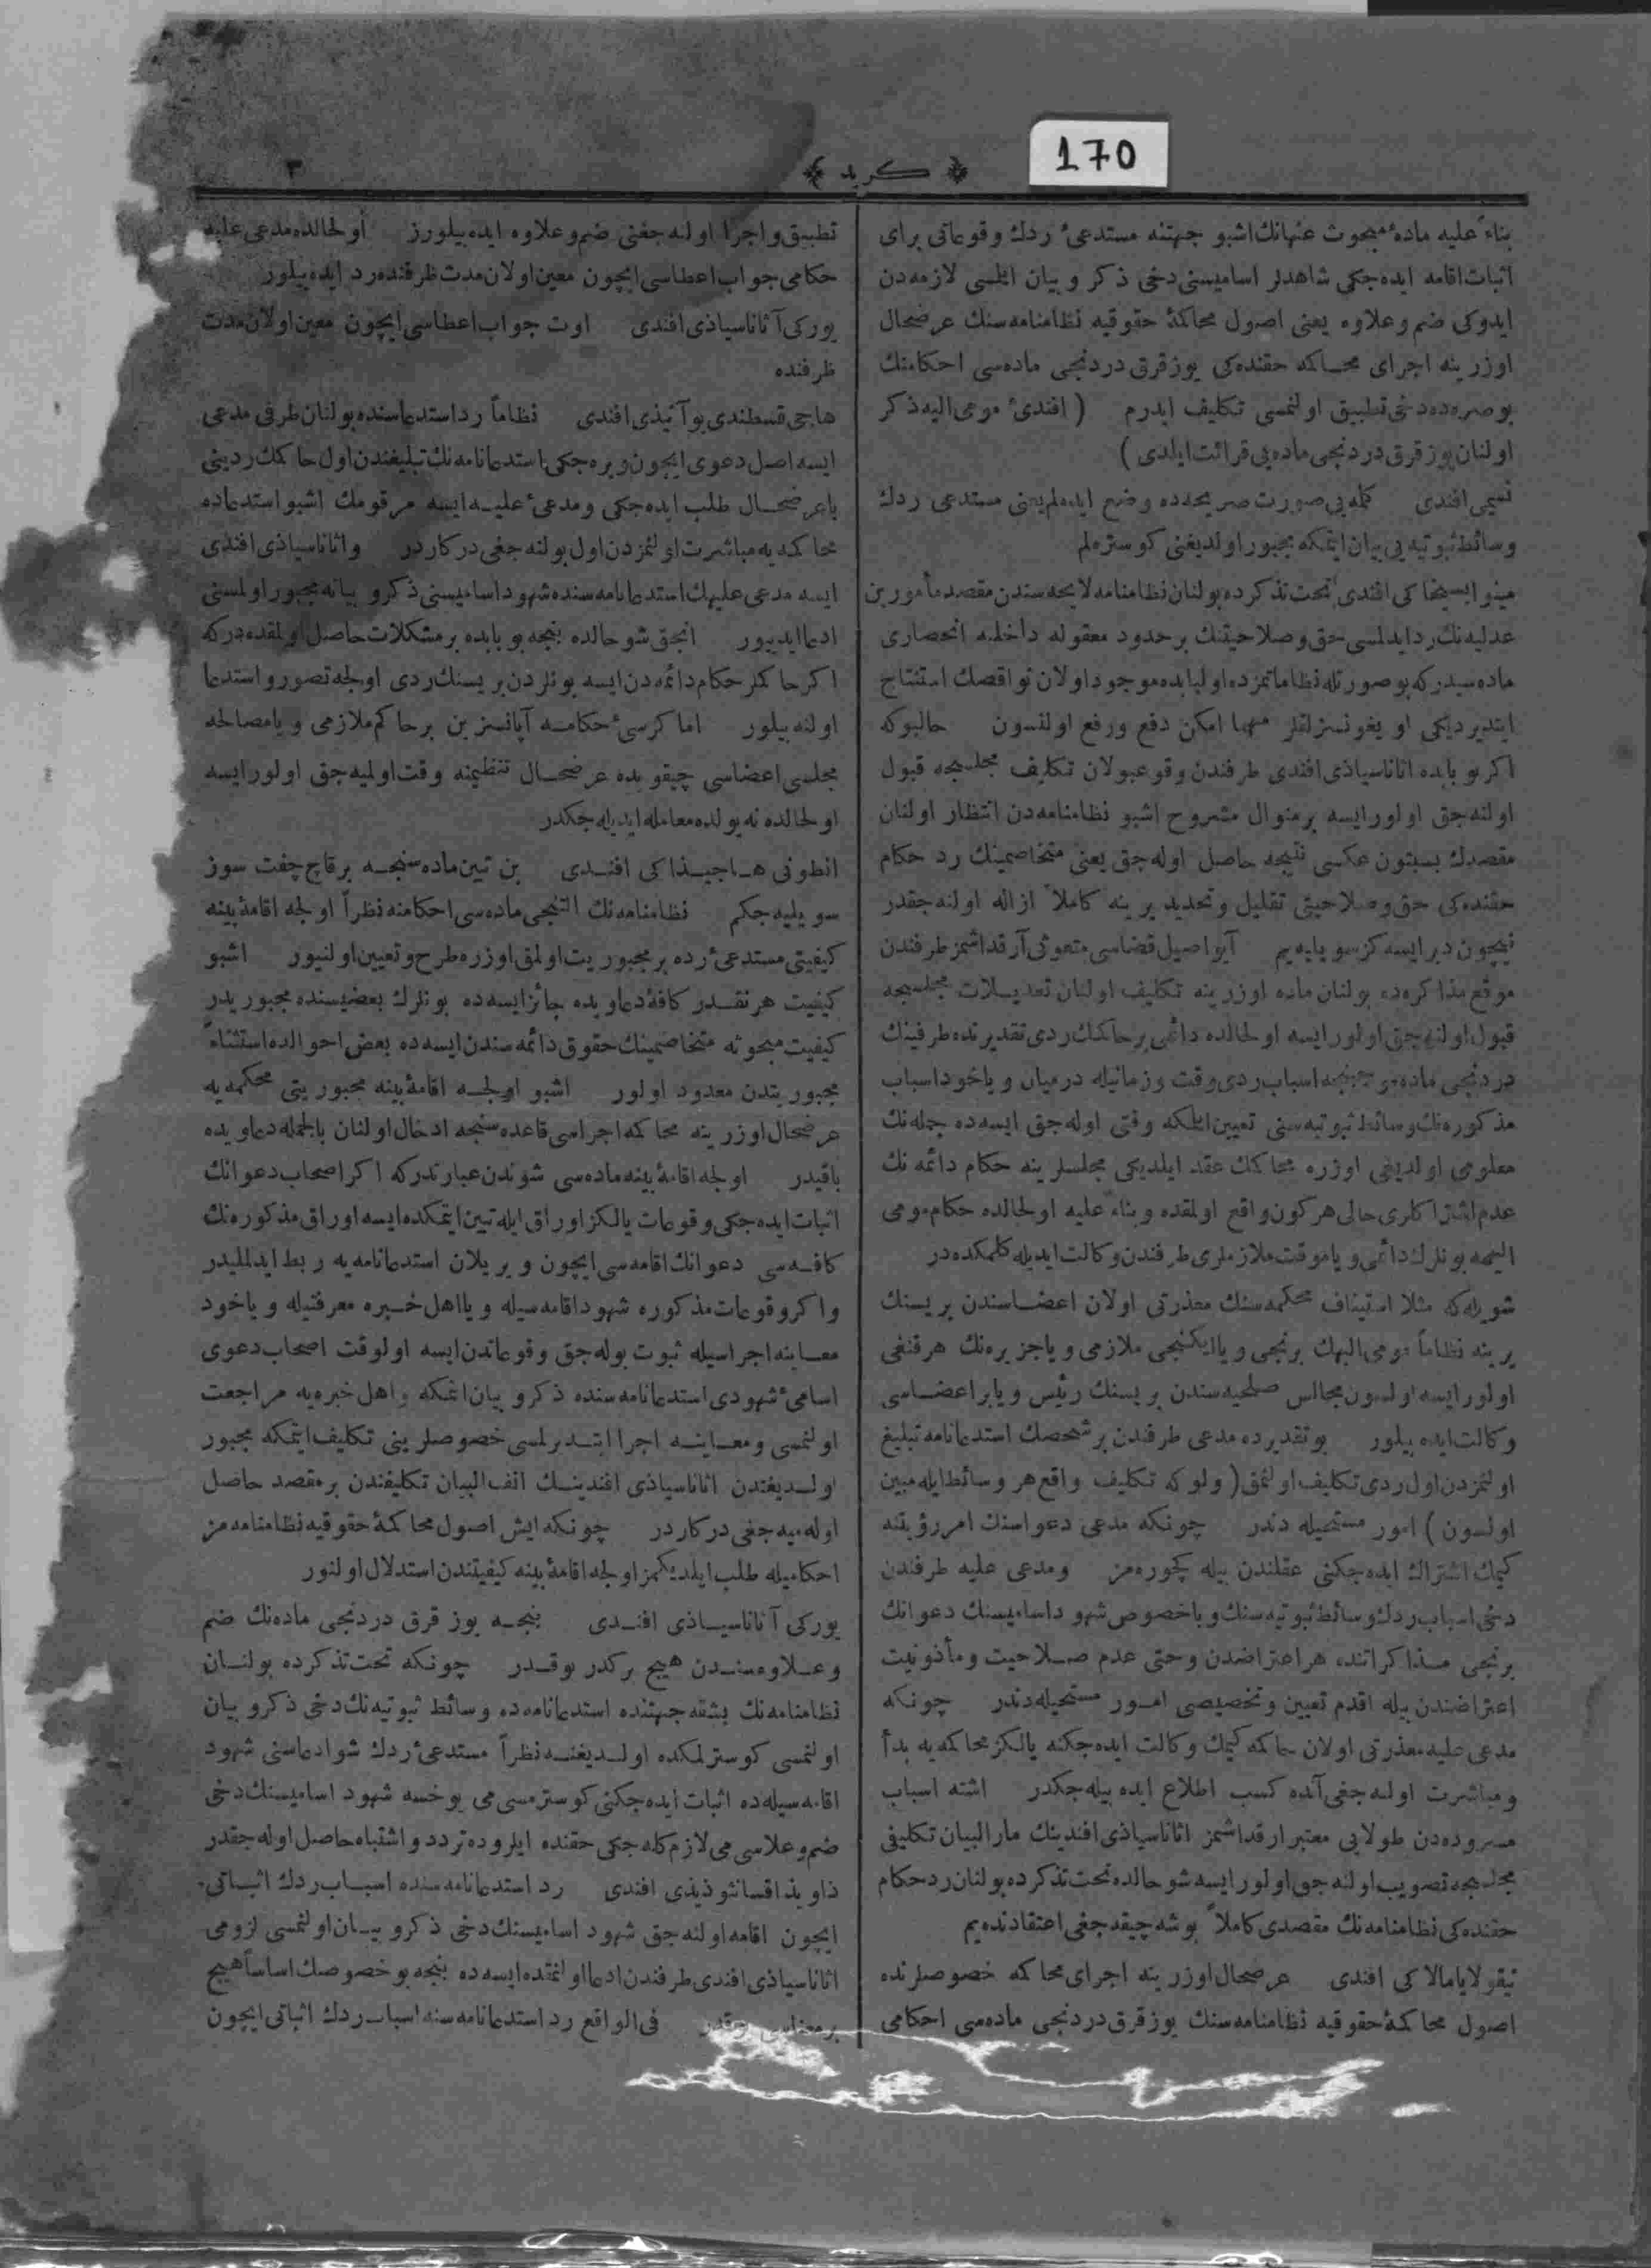 170
﴿ كريد ﴾
٣
بناءً عليه ماده مبحوث عنهانك اشبو جهتنه مستدعئ ردك وقوعاتى براى
اثبات اقامه ايده جكى شاهدلر اساميسنى دخى ذكر و بيان ايلمسى لازمه دن
ايدوكى ضم وعلاوه يعنى اصول محاكمۀ حقوقيه نظامنامه سنك عرضحال
اوزرينه اجراى محاكمه حقنده كى يوز قرق دردنجى ماده سى احكامنك
بوصره ده دخى تطبيق اولنمسى تكليف ايدرم ( افندئ مومى اليه ذكر
اولنان يوز قرق دردنجى ماده يى قرائت ايلدى )
نسيمى افندى كله يى صورت صريحه ده وضع ايده لم يعنى مستدعى ردك
وسائط ثبوتيه يى بيان ايتمكه مجبور اولديغنى كوستره لم
مينوا يسيخاكى افندى تحت تذكرده بولنان نظامنامه لايحه سندن مقصد مأمورين
عدليه نك رد ايدلمسى حق وصلاحيتنك بر حدود معقوله داخلنه انحصارى
ماده سيدركه بو صورتله نظاماتمزده اولبابده موجود اولان نواقصك استنتاج
ايتديرديكى او يغونسزلقلر مهما امكن دفع ورفع اولنسون حالبوكه
اكر بو بابده اثاناسياذى افندى طرفندن وقوعبولان تكليف مجلسجه قبول
اولنه جق اولور ايسه بر منوال مشروح اشبو نظامنامه دن انتظار اولنان
مقصدك بستبتون عكسى نتيجه حاصل اوله جق يعنى متخاصمينك رد حكام
حقنده كى حق وصلاحيتى تقليل وتحديد يرينه كاملاً ازاله اولنه جقدر
نيچون دير ايسه كز سويليه يم آپواصيل قضاسى متعوثى آرقداشمز طرفندن
موقع مذاكره ده بولنان ماده اوزرينه تكليف اولنان تعديلات مجلسجه
قبول اولنه جق اولور ايسه اولحالده دائمى بر حاكمك ردى تقديرنده طرفينك
دردنجى ماده موجبنجه اسباب ردى وقت وزمانيله درميان و ياخود اسباب
مذكوره نك وسائط ثبوتيه سنى تعيين ايلمكه وقتى اوله جق ايسه ده جمله نك
معلومى اولديغى اوزره محاكمك عقد ايلديكى مجلسلرينه حكام دائمه نك
عدم اشتراكلرى حالى هركون واقع اولمقده وبناءً عليه اولحالده حكام مومى
اليهمه بونلرك دائمى و ياموقت ملازملرى طرفندن وكالت ايديله كلمكده در
شويله كه مثلا استيناف محكمه سنك معذرتى اولان اعضاسندن بريسنك
يرينه نظاماً مومى اليهك برنجى و ياايكنجى ملازمى و ياجزيره نك هرقنغى
اولور ايسه اولسون مجالس صلحيه سندن بريسنك رئيس و يابر اعضاسى
وكالت ايده بيلور بو تقديرده مدعى طرفندن بر شخصك استدعانامه تبليغ
اولنمزدن اول ردى تكليف اولنمق ( ولوكه تكليف واقع هر وسائط ايله مبين
اولسون ) امور مستحيله دندر چونكه مدعى دعواسنك امر رؤيتنه
كيمك اشتراك ايده جكنى عقلندن بيله كچوره مز ومدعى عليه طرفندن
دخى اسباب ردك وسائط ثبوتيه سنك و ياخصوص شهود اساميسنك دعوانك
برنجى مذاكراتنده هر اعتراضدن وحتى عدم صلاحيت ومأذونيت
اعتراضندن بيله اقدم تعيين وتخصيصى امور مستحيله دندر چونكه
مدعى عليه معذرتى اولان حاكمه كيمك وكالت ايده جكنه يالكز محاكمه يه بدأ
ومباشرت اولنه جغى آنده كسب اطلاع ايده بيله جكدر اشته اسباب
مسروده دن طولايى معتبر ارقداشمز اثاناسياذى افندينك مارالبيان تكليفى
مجلسجه تصويب اولنه جق اولور ايسه شو حالده تحت تذكرده بولنان رد حكام
حقنده كى نظامنامه نك مقصدى كاملاً بوشه چيقه جغى اعتقادنده يم
نيقولا يامالاكى افندى عرضحال اوزرينه اجراى محاكمه خصوصلرنده
اصول محاكمۀ حقوقيه نظامنامه سنك يوز قرق دردنجى ماده سى احكامى
تطبيق واجرا اولنه جغنى ضم وعلاوه ايده بيلورز اولحالده مدعى عليه
حكامى جواب اعطاسى ايچون معين اولان مدت ظرفنده رد ايده بيلور
يوركى آثاناسياذى افندى اوت جواب اعطاسى ايچون معين اولان مدت
ظرفنده
حاجى قسطندى بوآنيذى افندى نظاماً رد استدعاسنده بولنان طرفى مدعى
ايسه اصل دعوى ايچون ويره جكى استدعانامه نك تبليغندن اول حاكمك ردينى
باعرضحال طلب ايده جكى ومدعئ عليه ايسه مرقومك اشبو استدعاده
محاكمه يه مباشرت اولنمزدن اول بولنه جغى دركاردر واثاناسياذى افندى
ايسه مدعى عليهك استدعانامه سنده شهود اساميسنى ذكرو بيانه مجبور اولمسنى
ادعا ايدييور انجق شو حالده بنجه بو بابده بر مشكلات حاصل اولمقده دركه
اكر حاكملر حكام دائمه دن ايسه بونلردن بريسنك ردى اولجه تصور و استدعا
اولنه بيلور اما كرسئ حكامه آپانسزين بر حاكم ملازمى و يا مصالحه
مجلسى اعضاسى چيقوبده عرضحال تنظيمنه وقت اولميه جق اولور ايسه
اولحالده نه يولده معامله ايديله جكدر
انطونى هاجيذاكى افندى بن تين ماده سنجه برقاچ چفت سوز
سويليه جكم نظامنامه نك التنجى ماده سى احكامنه نظراً اولجه اقامۀ بينه
كيفيتى مستدعئ رده بر مجبوريت اولمق اوزره طرح وتعيين اولنيور اشبو
كيفيت هر نقدر كافۀ دعاويده جائز ايسه ده بونلرك بعضيسنده مجبوريدر
كيفيت مبحوثه متخاصمينك حقوق دائمه سندن ايسه ده بعض احوالده استثناءً
مجبوريتدن معدود اولور اشبو اولجه اقامۀ بينه مجبوريتى محكمه يه
عرضحال اوزرينه محاكمه اجراسى قاعده سنجه ادخال اولنان بالجمله دعاويده
باقيدر اولجه اقامۀ بينه ماده سى شوندن عبارتدركه اكر اصحاب دعوانك
اثبات ايده جكى وقوعات يالكز اوراق ايله تبين ايتمكده ايسه اوراق مذكوره نك
كافه سى دعوانك اقامه سى ايچون ويريلان استدعانامه يه ربط ايدلمليدر
واكر وقوعات مذكوره شهود اقامه سيله و يااهل خبره معرفتيله و ياخود
معاينه اجراسيله ثبوت بوله جق وقوعاتدن ايسه اولوقت اصحاب دعوى
اسامئ شهودى استدعانامه سنده ذكرو بيان اتمكه و اهل خبره يه مراجعت
اولنمسى ومعاينه اجرا ايتديرلمسى خصوصلرينى تكليف ايتمكه مجبور
اولديغندن اثاناسياذى افندينك انف البيان تكليفندن بر مقصد حاصل
اوله ميه جغى دركاردر چونكه ايش اصول محاكمۀ حقوقيه نظامنامه مز
احكاميله طلب ايلديكمز اولجه اقامۀ بينه كيفيتندن استدلال اولنور
يوركى آثاناسياذى افندى بنجه يوز قرق دردنجى ماده نك ضم
وعلاوه سندن هيچ بر كدر يوقدر چونكه تحت تذكرده بولنان
نظامنامه نك بشقه جهتنده استدعانامه ده وسائط ثبوتيه نك دخى ذكرو بيان
اولنمسى كوسترلمكده اولديغنه نظراً مستدعئ ردك شو ادعاسنى شهود
اقامه سيله ده اثبات ايده جكنى كوسترمسى مى يوخسه شهود اساميسنك دخى
ضم وعلاسى مى لازم كله جكى حقنده ايلروده تردد و اشتباه حاصل اوله جقدر
ذاويذ اقسانثوذيذى افندى رد استدعانامه سنده اسباب ردك اثباتى
ايچون اقامه اولنه جق شهود اساميسنك دخى ذكرو بيان اولنمسى لزومى
اثاناسياذى افندى طرفندن ادعا اولنمقده ايسه ده بنجه بو خصوصك اساساً هيچ
بر معناسى يوقدر فى الواقع رد استدعانامه سنه اسباب ردك اثباتى ايچون